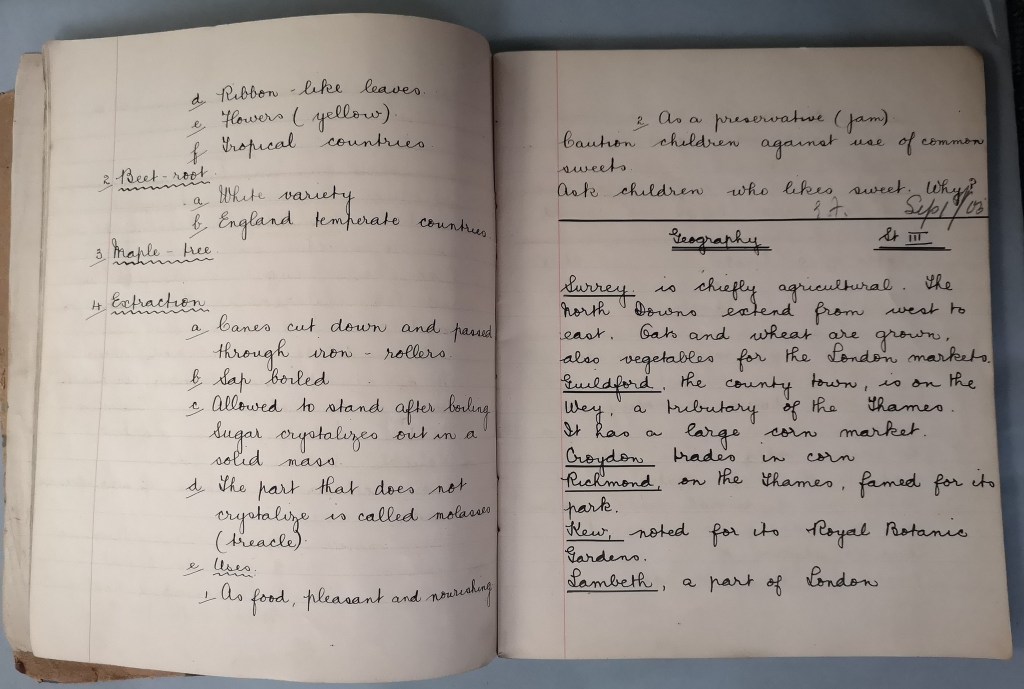 d Ribbon-like leaves.
e Flowers (yellow)
f Tropical countries
2 Beet-root.
a White variety
b England temperate countries
3 Maple-tree
4 Extraction
a Canes cut down and passed
through iron-rollers.
b Sap boiled
c Allowed to stand after boiling
Sugar crystalizes out in a
solid mass.
d The part that does not
crystalize is called molasses
(treacle).
e Uses.
1 As food, pleasant and nourishing
2 As a preservative (jam)
Caution children against use of common
sweets.
Ask children who likes sweet. Why?
Sep 1/03
Geography St III
Surrey. is chiefly agricultural. The
North Downs extend from west to
east. Oats and wheat are grown,
also vegetables for the London markets.
Guildford, the county town, is on the
Wey, a tributary of the Thames.
It has a large corn market.
Croydon trades in corn
Richmond, on the Thames, famed for its
park.
Kew, noted for its Royal Botanic
Gardens.
Lambeth, a part of London